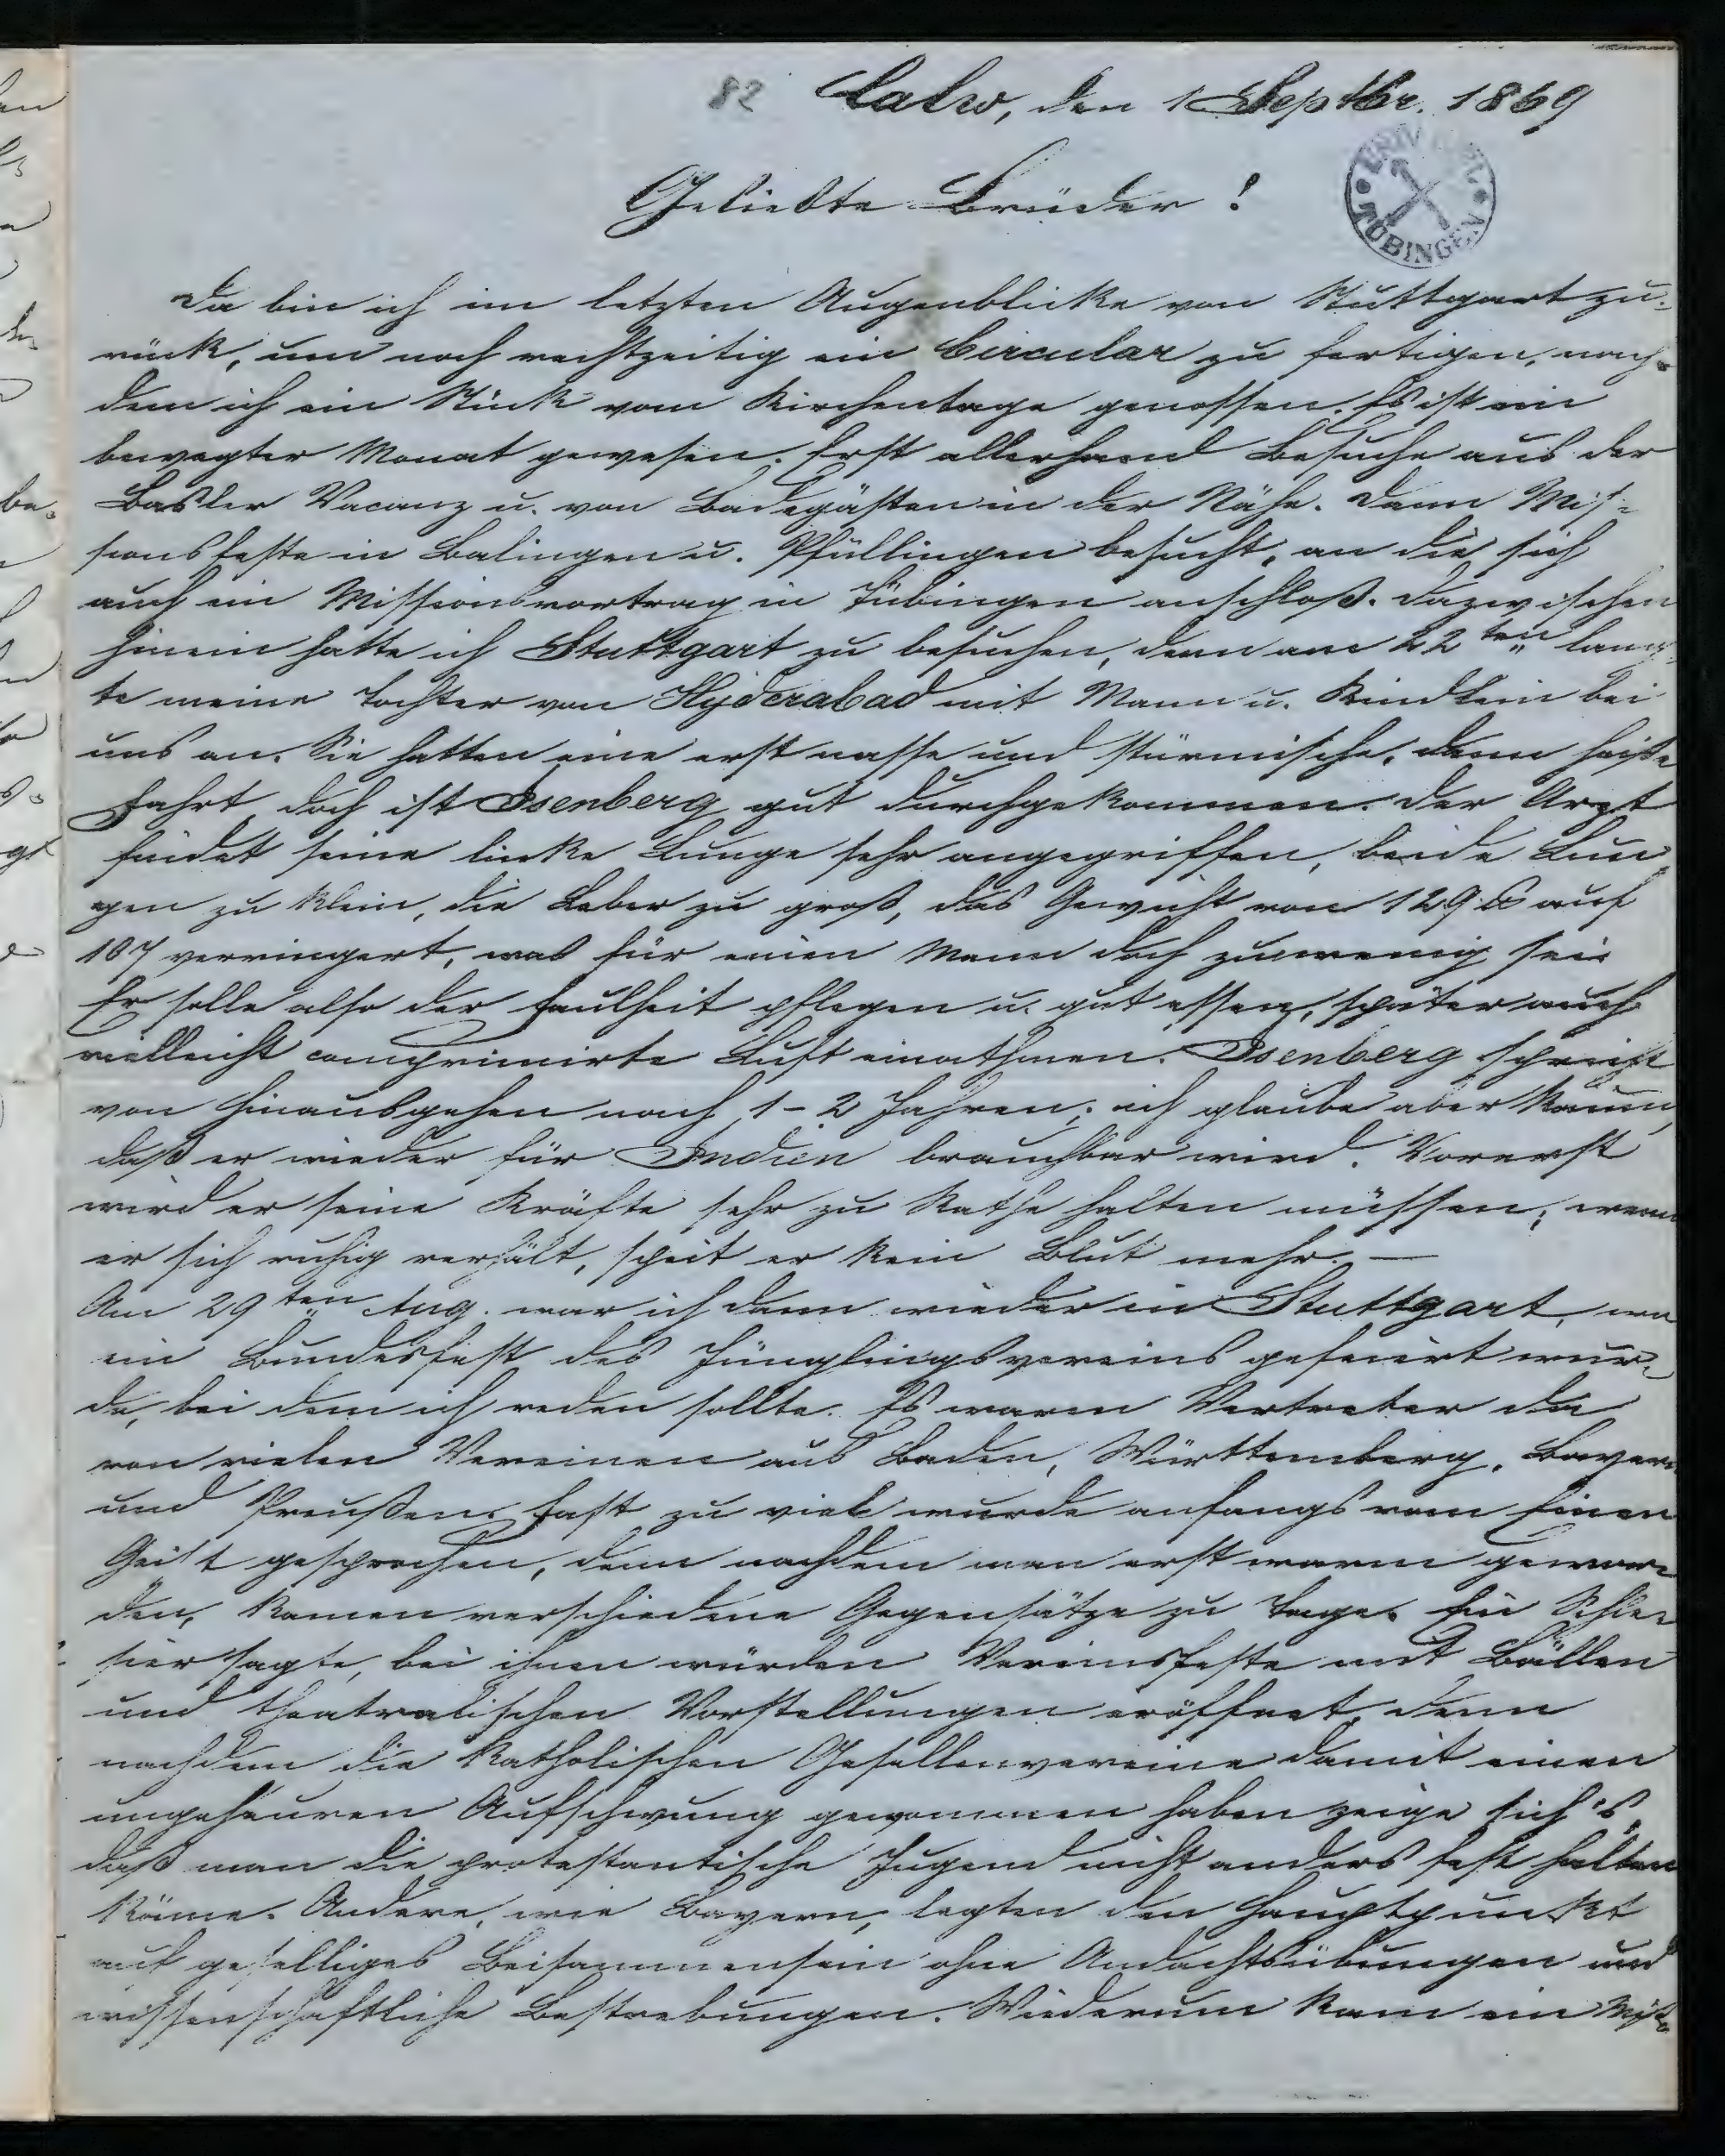 82 Calw, den 1 Septbr. 1869
UNIV. BIBL.
TÜBINGEN
Geliebte Brüder!
Da bin ich im letzten Augenblicke von Stuttgart zu-
rück, um noch rechtzeitig ein Circular zu fertigen, nach-
dem ich ein Stück vom Kirchentage genossen. Es ist ein
bewegter Monat gewesen. Erst allerhand Besuche aus der
Basler Vacanz u. von Badegästen in der Nähe. Dann Mis-
sionsfeste in Balingen u. Pfullingen besucht, an die sich
auch ein Missionsvortrag in Tübingen anschloß. Dazwischen
hinein hatte ich Stuttgart zu besuchen, denn am 22ten lang-
te meine Tochter von Hyderabad mit Mann u. Kindlein bei
uns an. Sie hatten eine erst nasse und stürmische, dann heiße
Fahrt doch ist Isenberg gut durchgekommen. Der Arzt
findet seine linke Lunge sehr angegriffen, beide Lun-
gen zu klein, die Leber zu groß, das Gewicht von 129 ℔ auf
107 verringert, was für einen Mann doch zuwenig sei.
Er solle also der Faulheit pflegen u. gut essen, später auch
vielleicht comprimirte Luft einathmen. Isenberg spricht
von Hinausgehen nach 1-2 Jahren; ich glaube aber kaum,
daß er wieder für Indien brauchbar wird. Vorerst
wird er seine Kräfte sehr zu Rathe halten müssen; wenn
er sich ruhig verhält, speit er kein Blut mehr. —
Am 29ten Aug. war ich dann wieder in Stuttgart, wo
ein Bundesfest des Jünglingsvereins gefeiert wur-
de, bei dem ich reden sollte. Es waren Vertreter da
von vielen Vereinen aus Baden, Württemberg, Bayern
und Preußen. Fast zu viel wurde anfangs vom Einen
Geist gesprochen, denn nachdem man erst warm gewor-
den, kamen verschiedene Gegensätze zu Tage. Ein Schle-
sier sagte, bei ihnen würden Vereinsfeste mit Bällen
und theatralischen Vorstellungen eröffnet, denn
nachdem die katholischen Gesellenvereine damit einen
ungeheuren Aufschwung gewonnen haben zeige sich's,
daß man die protestantische Jugend nicht anders fest halten
könne. Andere, wie Bayern, legten den Hauptpunkt
auf geselliges Beisammensein ohne Andachtsübungen und
wissenschaftliche Bestrebungen. Wiederum kam ein